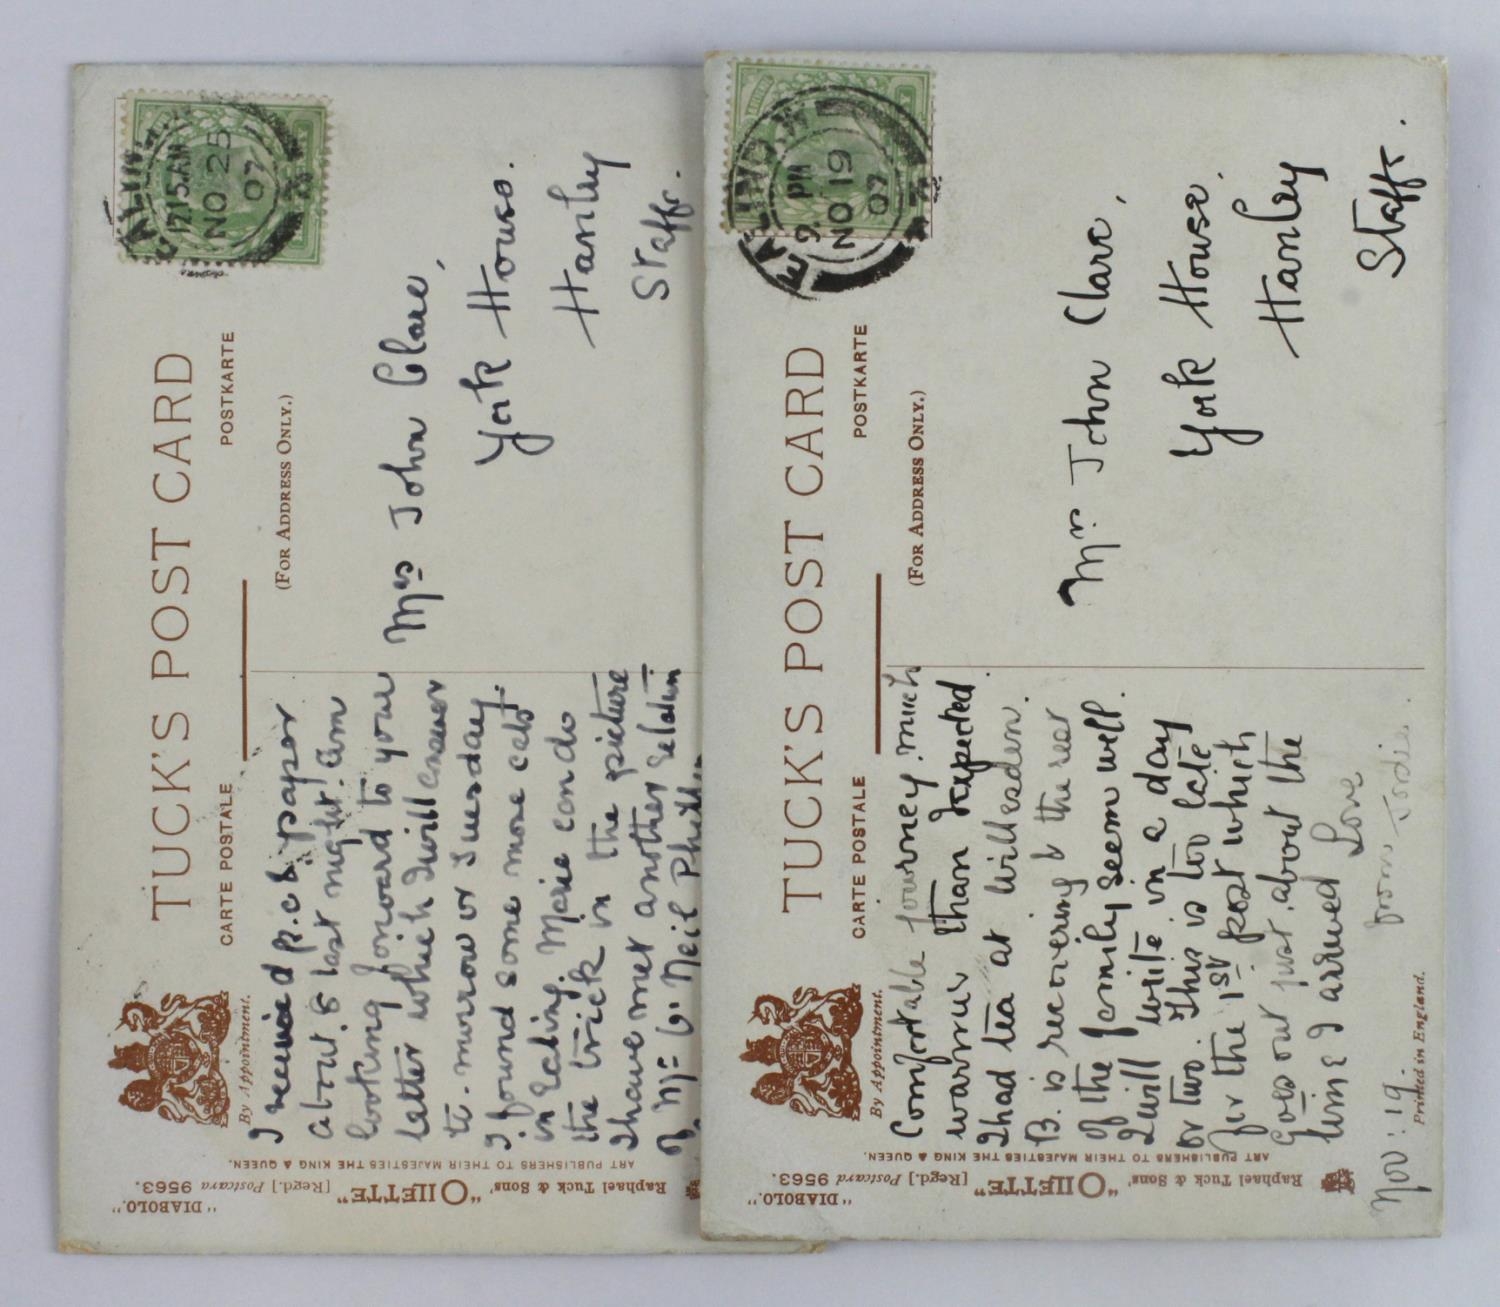 TUCK'S POST CARD
CARTE POSTALE
POSTKARTE
(FOR ADDRESS ONLY.)
By Appointment.
EALING
7.15 AM
NO 25
07
I received p.c & paper
about 8 last night. am
looking forward to your
letter which I will answer
to-morrow or Tuesday.
I found some more cats
in Ealing. Marie can do
the trick in the picture
I have met another relation
of Mr G. Neil
Mrs John Clare,
York House.
Hanley
Staffs.
"DIABOLO."
Raphael Tuck & Sons' "OILETTE" [Regd.] Postcard 9563.
ART PUBLISHERS TO THEIR MAJESTIES THE KING & QUEEN.
TUCK'S POST CARD
CARTE POSTALE
POSTKARTE
(FOR ADDRESS ONLY.)
By Appointment.
EALING.W
9. PM
NO 19
07
Comfortable journey. much
warmer than expected.
I had tea at Willesden.
B. is recovering & the rest
of the family seem well.
I will write in a day
or two. This is too late
for the 1st post which
goes out just about the
time I arrived Love
from
Nov: 19.
Mr. John Clare,
York House.
Hanley
Staffs.
"DIABOLO."
Raphael Tuck & Sons' "OILETTE" [Regd.] Postcard 9563.
ART PUBLISHERS TO THEIR MAJESTIES THE KING & QUEEN.
Printed in England.